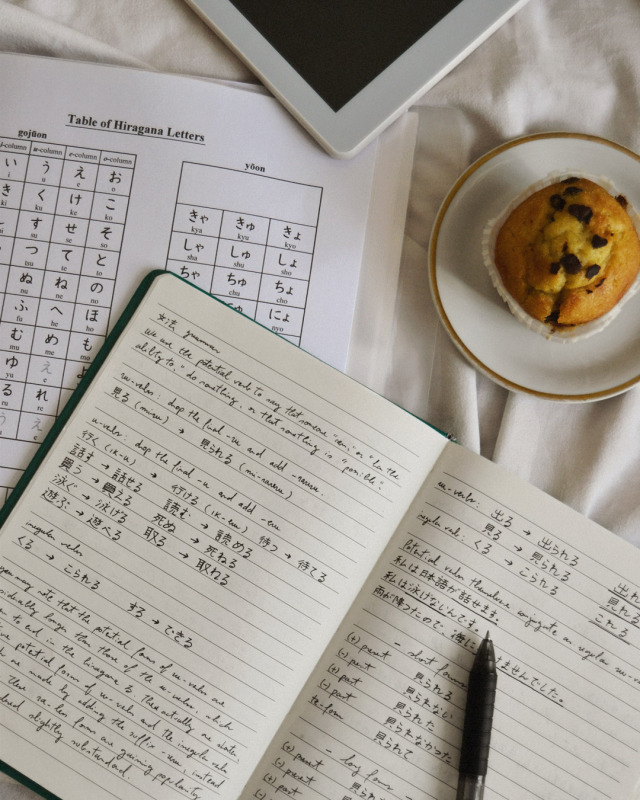 Table of Hiragana Letters
gojūon
yōon
i-column u-column e-column o-column
い う え お
i u e o
き く け こ
ki ku ke ko
す せ そ
su se so
つ て と
tsu te to
ぬ ね の
nu ne no
ふ へ ほ
fu he ho
む め も
mu me mo
ゆ え
yu e
る れ
ru re
う え
きゃ きゅ きょ
kya kyu kyo
しゃ しゅ しょ
sha shu sho
ちゃ ちゅ ちょ
chu cho
にょ
nyo
文法 grammar
we use the potential verb to say that someone "can" or "has the
ability to" do something, or that something is "possible".
ru-verbs: drop the final -ru and add -rareru.
見る (mi-ru) → 見られる (mi-rareru)
u-verbs: drop the final -u and add -eru
行く (ik-u) → 行ける (ik-eru) 待つ → 待てる
話す → 話せる 読む → 読める
買う → 買える 死ぬ → 死ねる
泳ぐ → 泳げる 取る → 取れる
遊ぶ → 遊べる
irregular verbs
くる → こられる する → できる
you may note that the potential forms of ru-verbs are
longer than those of the u-verbs, which
end in the hiragana る. Theoretically
potential forms of ru-verbs and the irregular verb
are made by adding the suffix -reru, instead
These ra-less forms are gaining popularity
slightly substandard.
ru-verbs: 出る → 出られる
見る → 見られる
irregular verb: くる → こられる
出れ
見れる
これる
Potential verbs themselves conjugate as regular ru-
私は日本語が話せます。
私は泳げないんです。
雨が降ったので、海に ませんでした。
- short forms
(+) present 見られる
(-) present 見られない
(+) past 見られた
(-) past 見られなかった
te-form 見られて
- long forms
(+) present
(-) present
(+) past